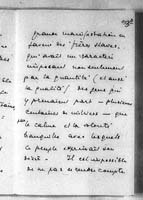 grande manifestation en
faveur des "frères slaves",
qui avait un caractère
imposant non seulement
par la quantité (et aussi
la qualité) des gens qui
y prenaient part — plusieurs
centaines de milliers — que
par le calme et la volonté
tranquille avec lesquels
le peuple exprimait son
désir. — Il est impossible
de ne pas se rendre compte